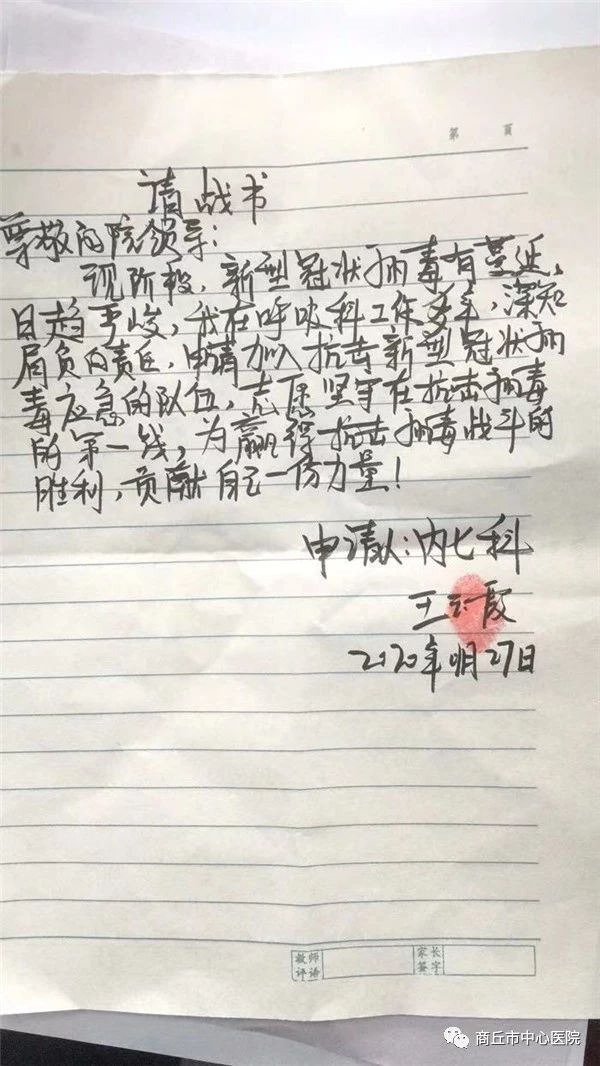 第 页
请战书
尊敬的院领导:
现阶段,新型冠状病毒有蔓延,
日趋严峻,我在呼吸科工作多年,深知
肩负的责任,申请加入抗击新型冠状病
毒应急的队伍,志愿坚守在抗击病毒
的第一线,为赢得抗击病毒战斗的
胜利,贡献自己一份力量!
申请人:内七科
王云霞
2020年1月27日
教师评语 家长签字
商丘市中心医院